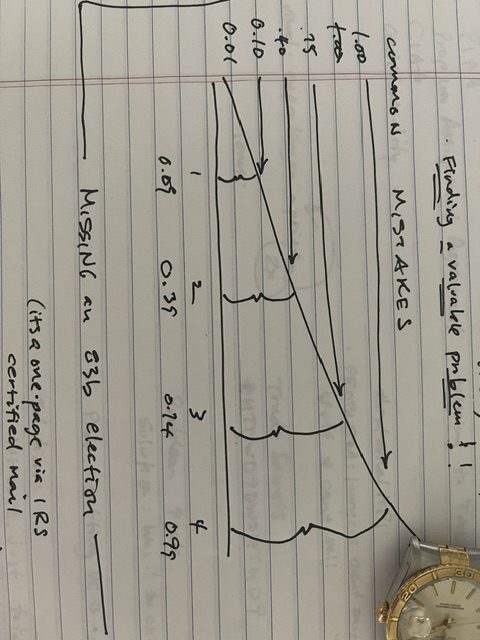 Finding a valuable problem !!
COMMON MISTAKES
1.00
.75
.40
0.10
0.01
1 2 3 4
0.09 0.39 0.74 0.99
MISSING an 83b election
(its a one-page via IRS
certified mail